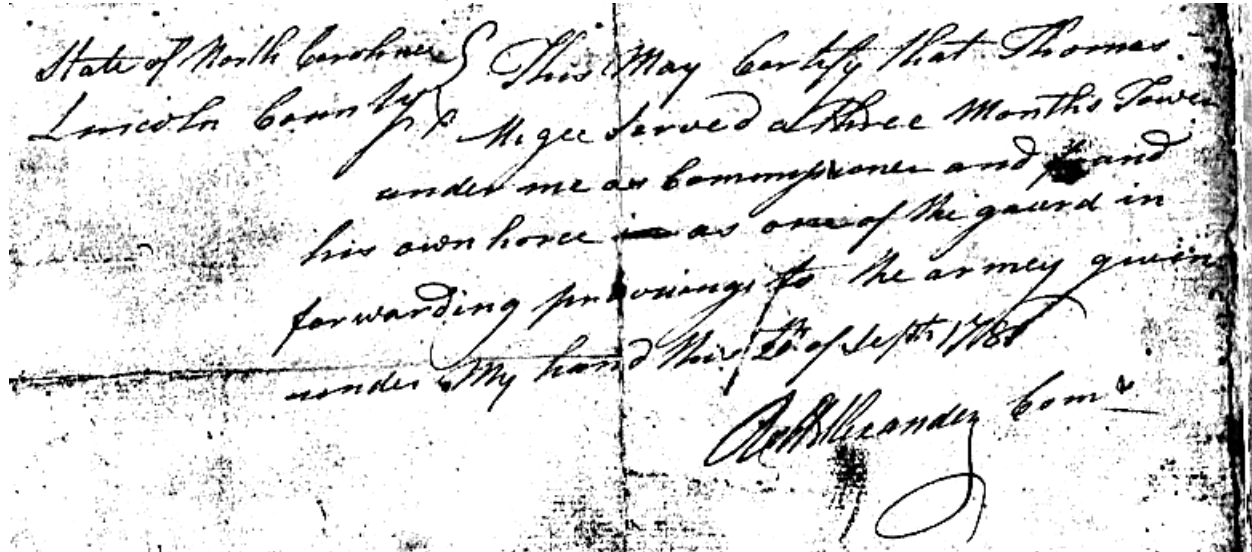 State of North Carolina This May Certify that Thomas
Lincoln County Mcgee Served a three Months Tower
under me as Commissioner and and
his own horce as one of the gaurd in
forwarding provisiongs to the armey given
under My hand this of Sept 1781
Robt Alexander Com